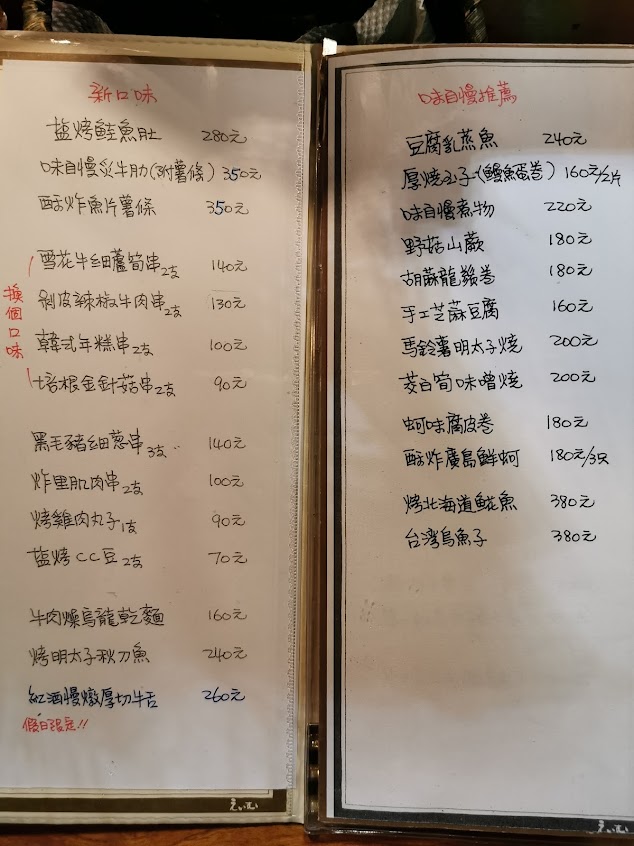 新口味
塩烤鮭魚肚 280元
味自慢炙牛肋(附薯條) 350元
酥炸魚片薯條 350元
換個口味
雪花牛細蘆筍串2支 140元
剝皮辣椒牛肉串2支 130元
韓式年糕串2支 100元
培根金針菇串2支 90元
黑毛豬細蔥串3支 140元
炸里肌肉串2支 100元
烤雞肉丸子1支 90元
塩烤CC豆2支 70元
牛肉燥烏龍乾麵 160元
烤明太子秋刀魚 240元
紅酒慢燉厚切牛舌 260元
假日限定!!
味自慢推薦
豆腐乳蒸魚 240元
厚燒玉子(鰻魚蛋卷) 160元/2片
味自慢煮物 220元
野菇山蕨 180元
胡麻龍鬚卷 180元
手工芝麻豆腐 160元
馬鈴薯明太子燒 200元
茭白筍味噌燒 200元
蚵味腐皮卷 180元
酥炸廣島鮮蚵 180元/3只
烤北海道魷魚 380元
台灣烏魚子 380元